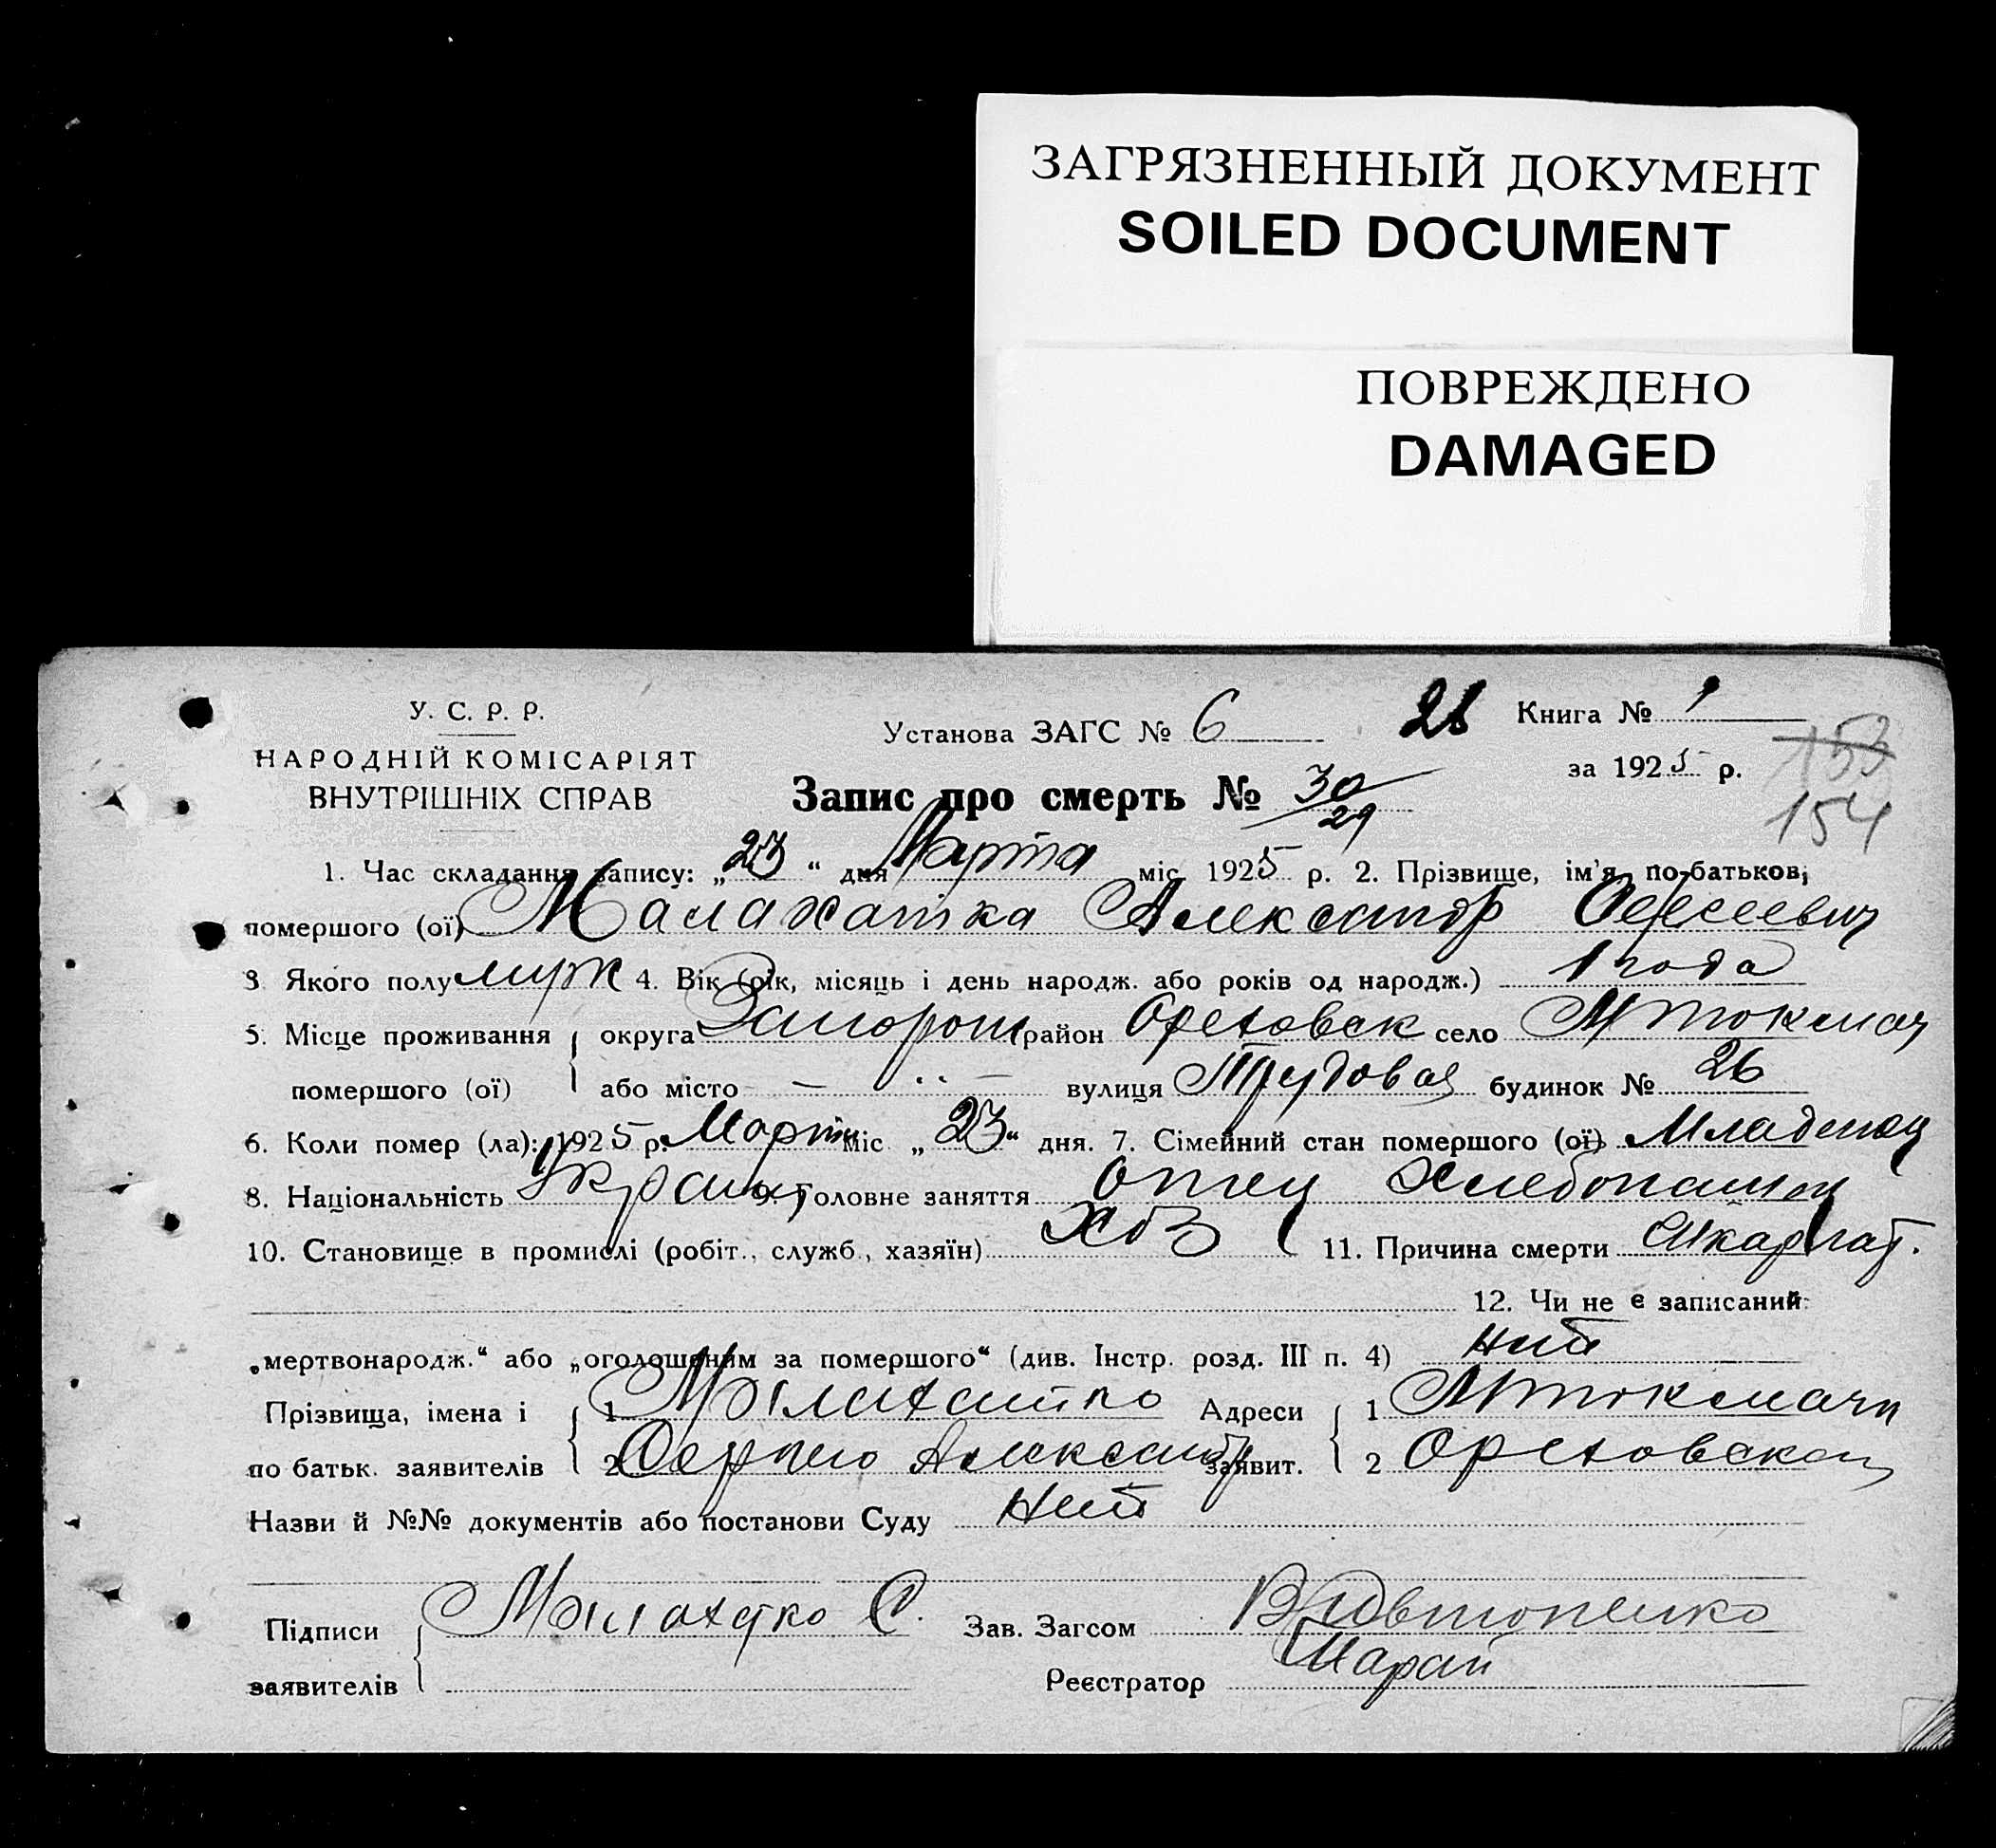 ЗАГРЯЗНЕННЫЙ ДОКУМЕНТ
SOILED DOCUMENT
ПОВРЕЖДЕНО
DAMAGED
У. С. Р. Р.
НАРОДНІЙ КОМІСАРІЯТ
ВНУТРІШНІХ СПРАВ
Установа ЗАГС № 6
Книга № 1
за 1925 р.
153
154
Запис про смерть № 30/29
1. Час складання запису: „23“ дня Марта міс. 1925 р. 2. Прізвище, ім'я, по-батькові
помершого (ої) Малахатка Александр
3. Якого полу муж 4. Вік (рік, місяць і день народж. або років од народж.) 1 года
5. Місце проживання округа Запорож район Ореховск село М Токмач
помершого (ої) або місто — вулиця Трудовая будинок № 26
6. Коли помер (ла): 1925 р. Марта міс. „23“ дня. 7. Сімейний стан помершого (ої) Младенец
8. Національність Украин 9. Головне заняття Отец Хлебопашец
10. Становище в промислі (робіт., служб., хазяїн) Хоз 11. Причина смерти Шкарлат.
12. Чи не є записаний
„мертвонародж.“ або „оголошеним за помершого“ (див. Інстр. розд. III п. 4) Нит
Прізвища, імена і 1 Малахатко Адреси 1 М Токмачи
по батьк. заявителів 2 Сергею Александр заявит. 2 Ореховской
Назви й №№ документів або постанови Суду Нит
Підписи Малахатко С. Зав. Загсом
заявителів Реєстратор